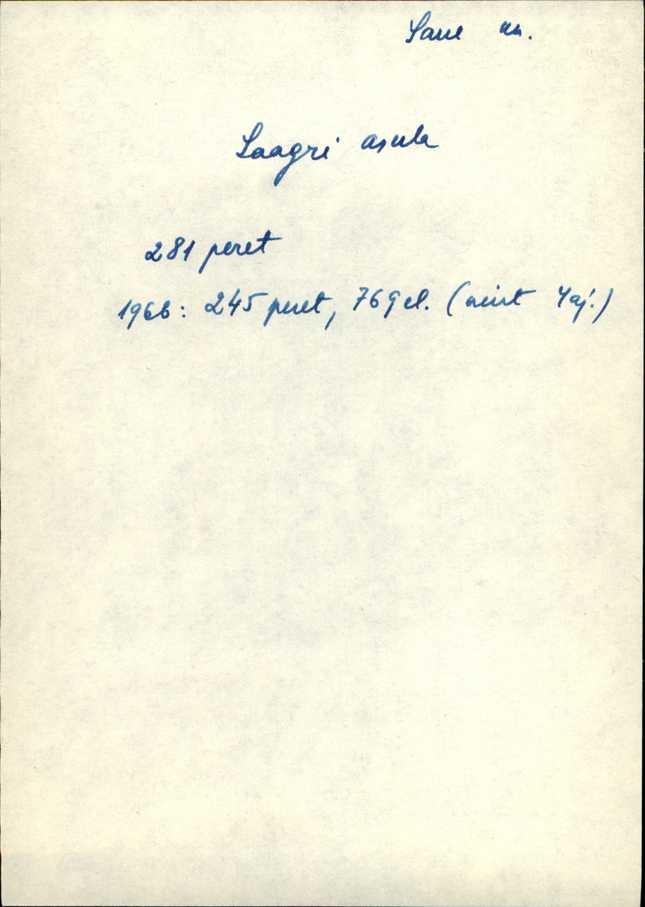 Saue kn.
Laagri asula
281 peret
1966: 245 peret, 769 el. (neist 4 aj.)